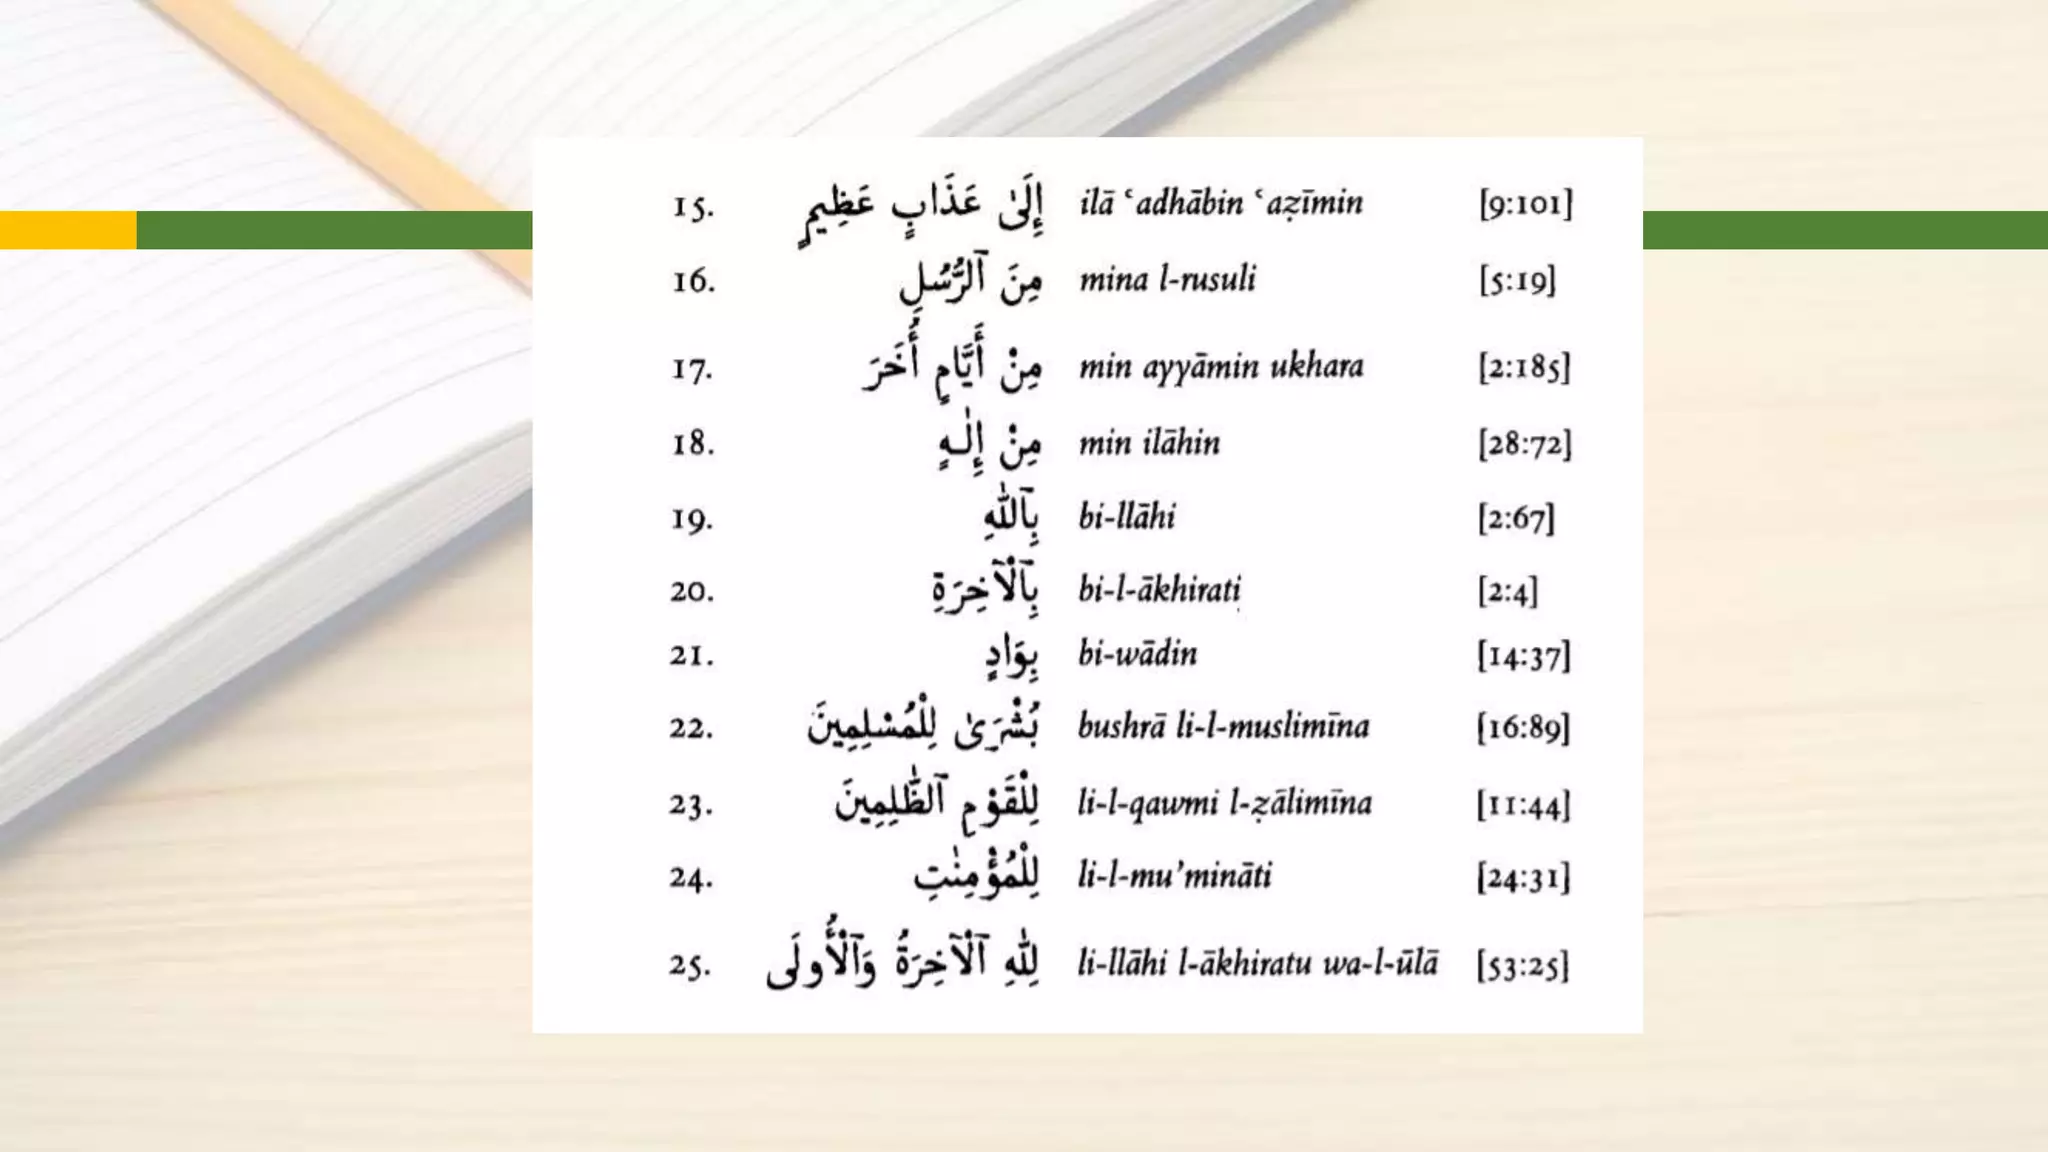 15. إِلَىٰ عَذَابٍ عَظِيمٍ ilā ʿadhābin ʿaẓīmin [9:101]
16. مِنَ ٱلرُّسُلِ mina l-rusuli [5:19]
17. مِنْ أَيَّامٍ أُخَرَ min ayyāmin ukhara [2:185]
18. مِنْ إِلَـٰهٍ min ilāhin [28:72]
19. بِٱللَّهِ bi-llāhi [2:67]
20. بِٱلْآخِرَةِ bi-l-ākhirati [2:4]
21. بِوَادٍ bi-wādin [14:37]
22. بُشْرَىٰ لِلْمُسْلِمِينَ bushrā li-l-muslimīna [16:89]
23. لِلْقَوْمِ ٱلظَّٰلِمِينَ li-l-qawmi l-ẓālimīna [11:44]
24. لِلْمُؤْمِنَٰتِ li-l-mu’mināti [24:31]
25. لِلَّهِ ٱلْآخِرَةُ وَٱلْأُولَى li-llāhi l-ākhiratu wa-l-ūlā [53:25]